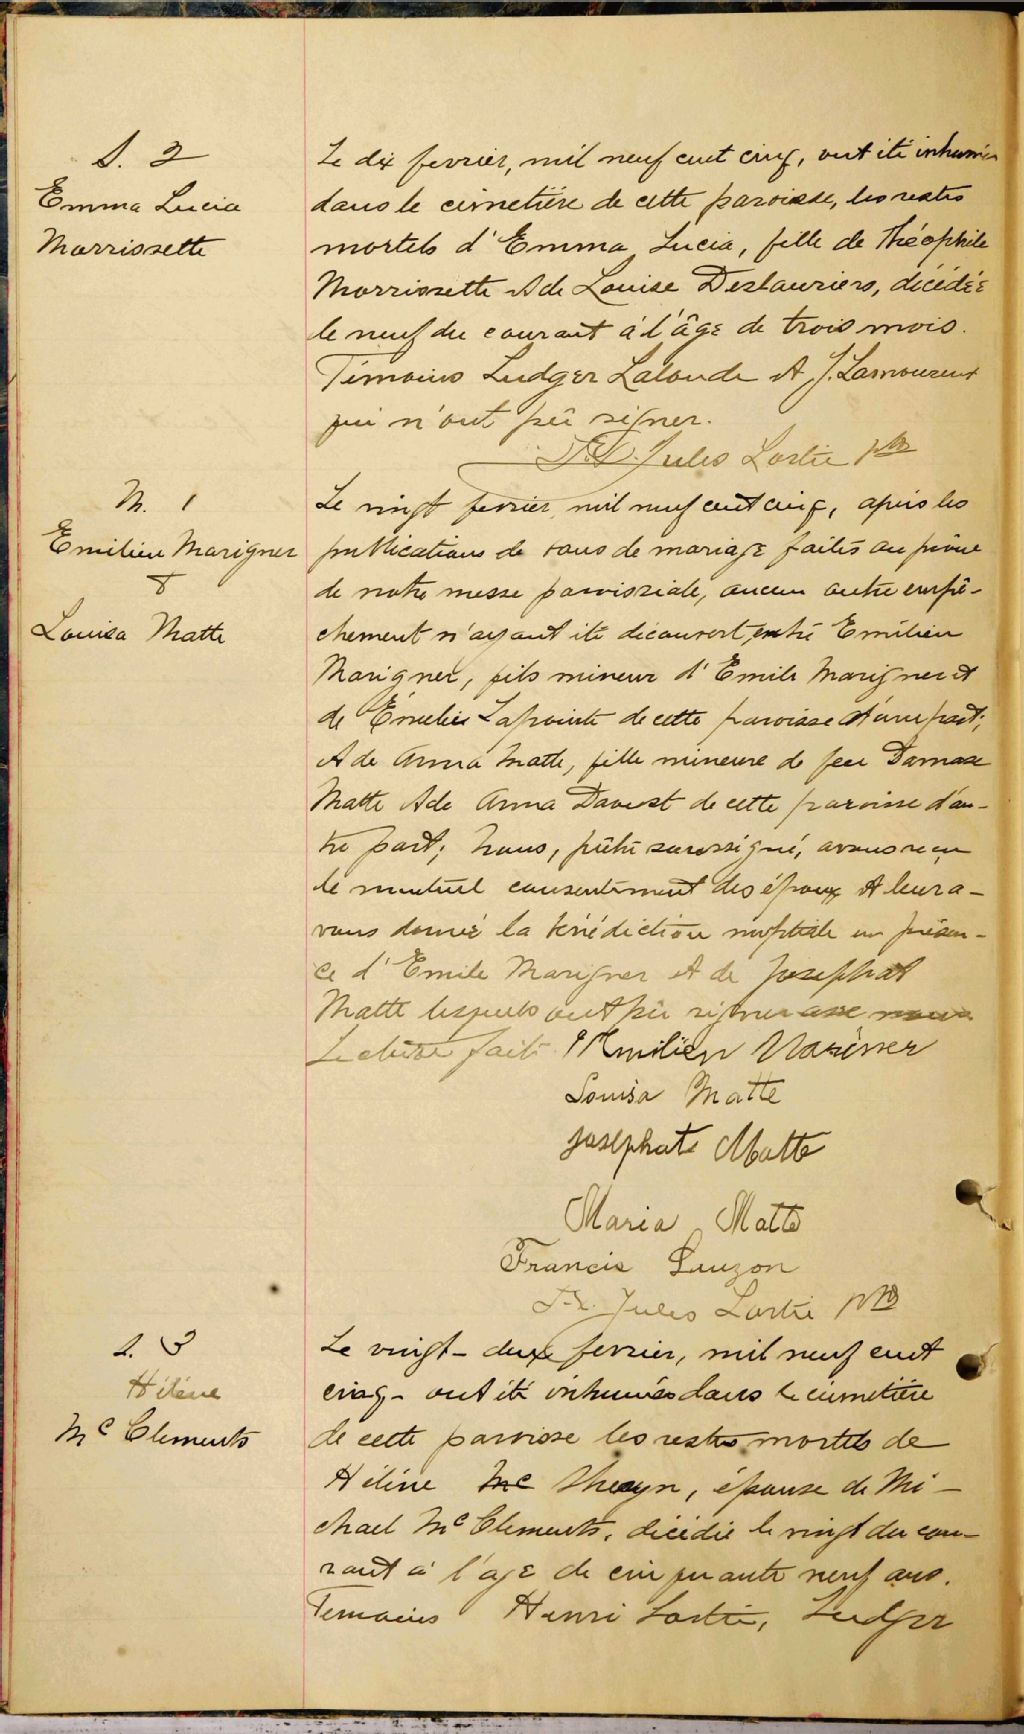 S. 2
Emma Lucia
Morrissette
Le dix fevrier, mil neuf cent cinq, ont été inhumés
dans le cimetière de cette paroisse, les restes
mortels d'Emma Lucia, fille de Théophile
Morrissette & de Louise Deslauriers, décédée
le neuf du courant à l'âge de trois mois.
Témoins Ludger Lalonde & J. Lamoureux
qui n'ont pû signer.
Jules Lortie ptre
M. 1
Emilien Marigner
&
Louisa Matte
Le vingt fevrier mil neuf cent cinq, après les
publications de bans de mariage faites au prône
de notre messe paroissiale, aucun autre empê-
chement n'ayant été découvert, entre Emilien
Marigner, fils mineur d'Emile Marigner et
de Émelie Lapointe de cette paroisse d'une part;
& de Anna Matte, fille mineure de feu Damase
Matte & de Anna Daoust de cette paroisse d'au-
tre part; Nous, prêtre soussigné, avons reçu
le mutuel consentement des époux & leur a-
vons donné la bénédiction nuptiale en présen-
ce d'Emile Marigner et de Josephat
Matte lesquels ont pû signer avec nous
Lecture faite Emilien Marinier
Louisa Matte
Josephate Matte
Maria Matte
Francis Lauzon
Jules Lortie ptre
S. 3
Hélène
Mc Clements
Le vingt-deux fevrier, mil neuf cent
cinq - ont été inhumés dans le cimetière
de cette paroisse les restes mortels de
Hélène Mc Sheeyn, épouse de Mi-
chael Mc Clements, décédée le vingt du cou-
rant à l'age de cinquante neuf ans.
Temoins Henri Lortie, Ludger